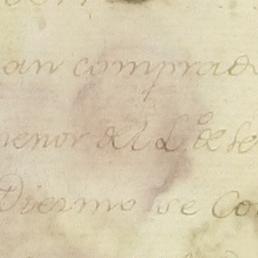 an comprado
menor del L.º de se
Diezmo se Co